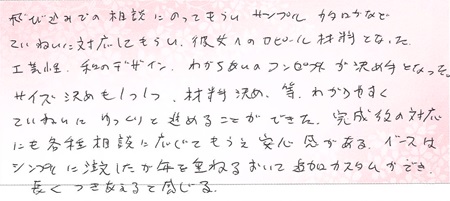 飛び込みでの相談にのってもらい サンプル カタログなど
ていねいに対応してもらい、彼女へのアピール材料となった。
工芸性、和のデザイン、わかちあいのコンセプトが決め手となった。
サイズ決めも1つ1つ、材料決め、等、わかりやすく
ていねいに ゆっくりと進めることができた。完成後の対応
にも各種相談に応じてもらえ安心感がある。ベースは
シンプルに注文したが年を重ねるおいて追加カスタムができ、
長くつきあえると感じる。